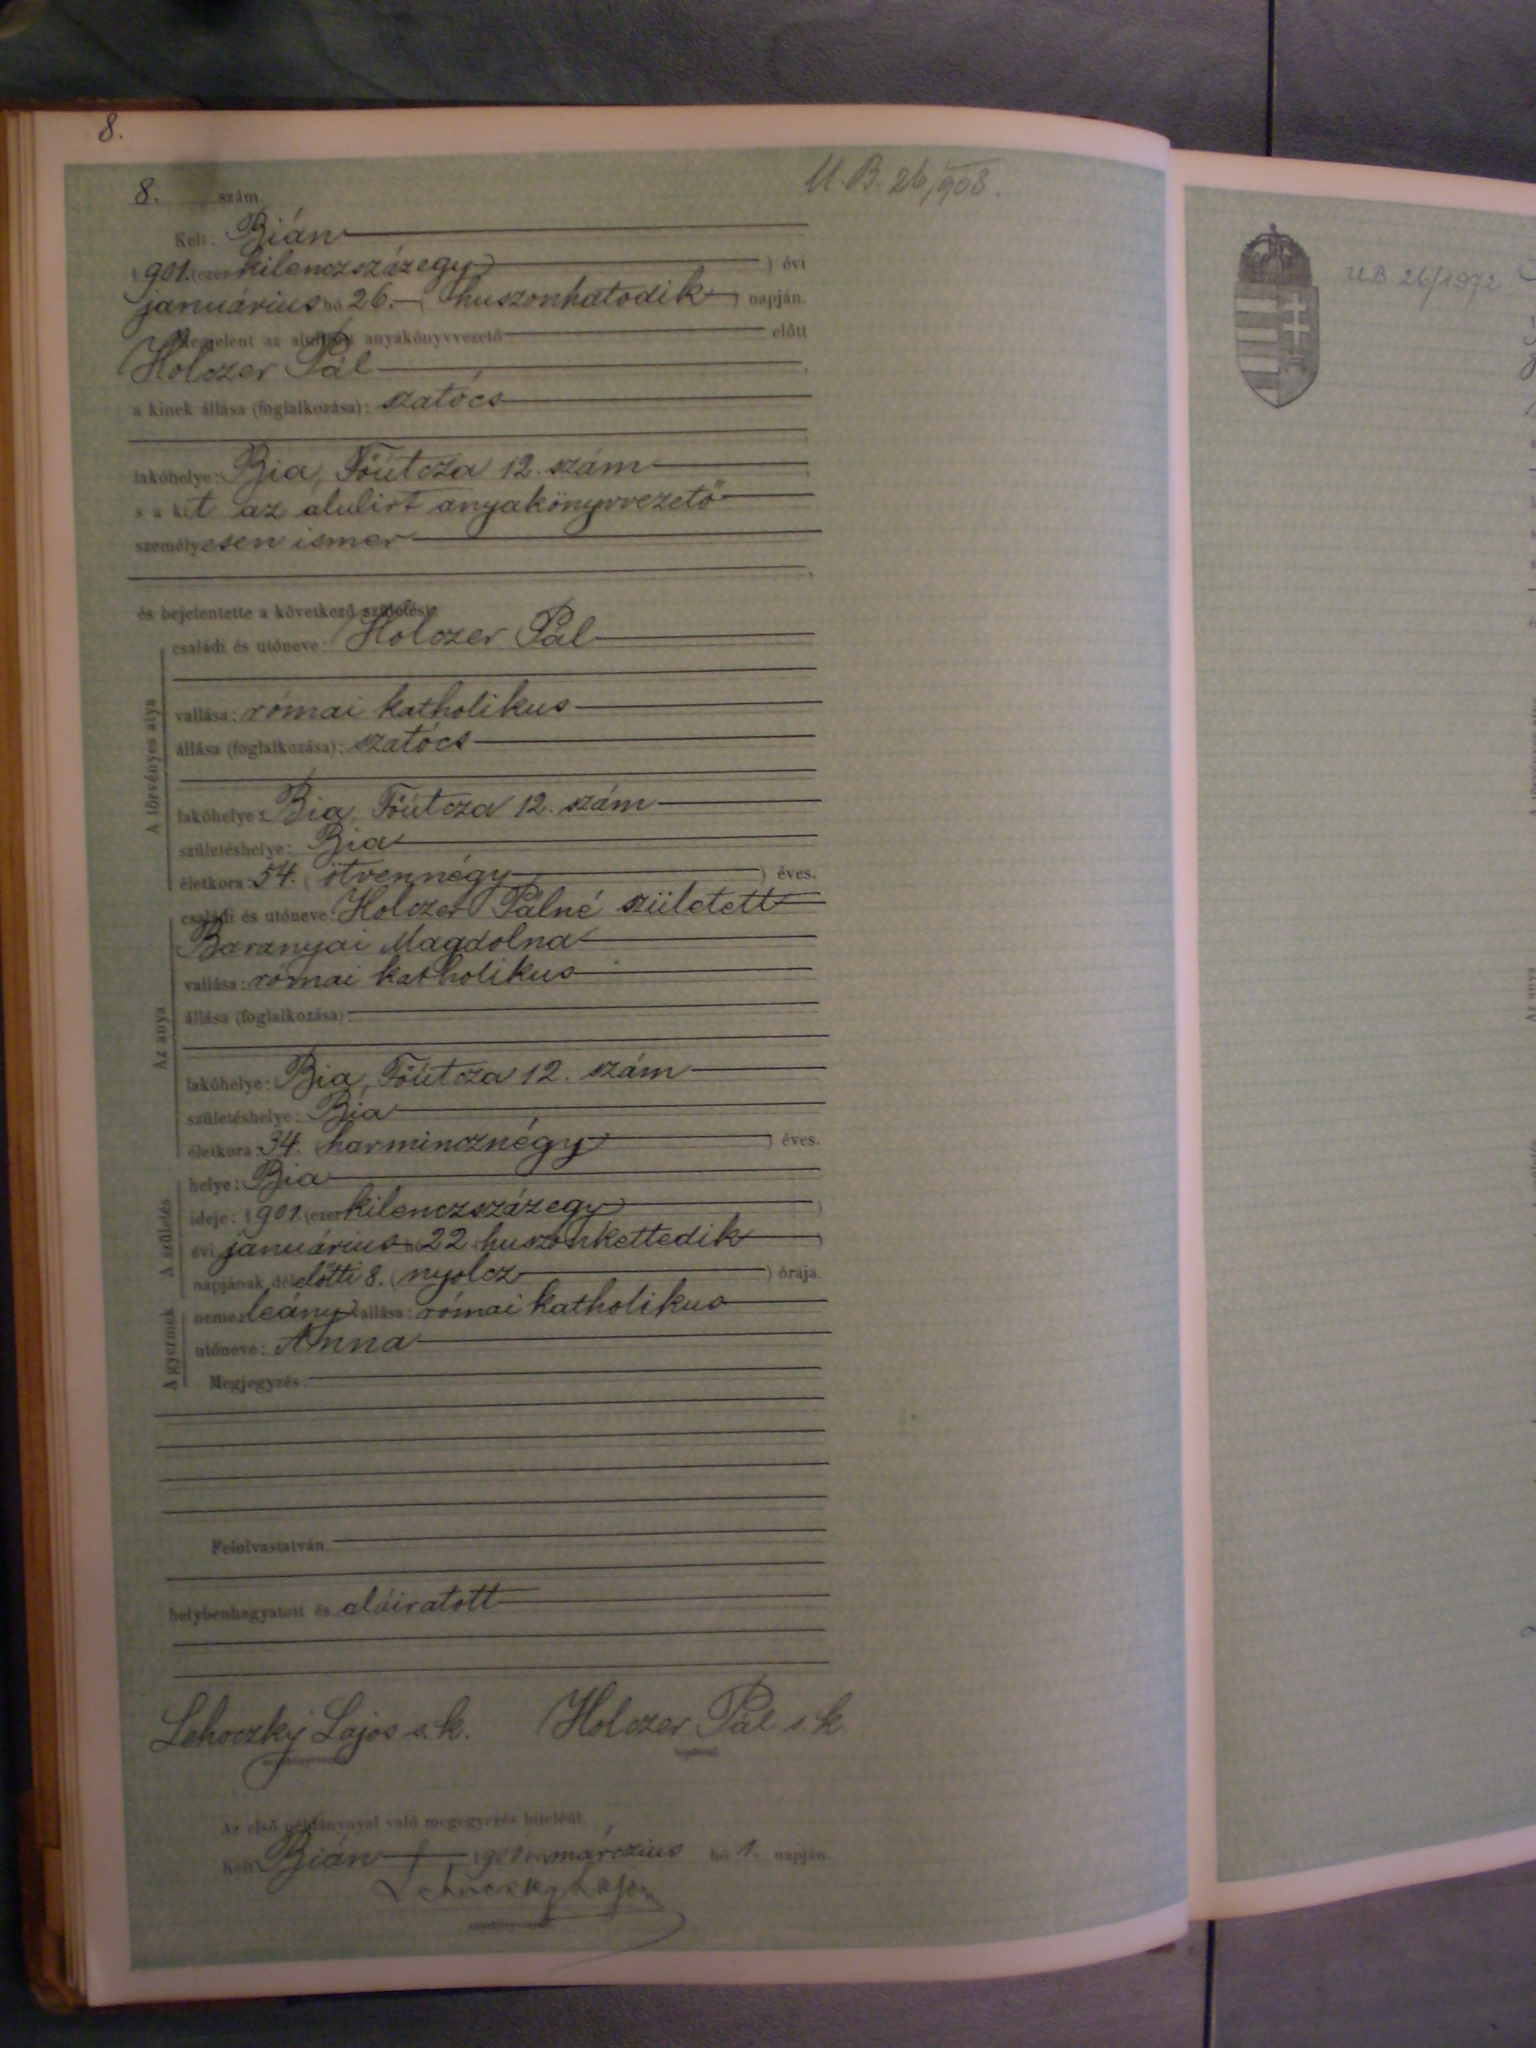 8.
8. szám
U.B. 26/908.
Kelt: Bián
1901. (ezer kilenczszázegy) évi
januárius hó 26. (huszonhatodik) napján.
Megjelent az alulírt anyakönyvvezető előtt
Holczer Pál
a kinek állása (foglalkozása): szatócs
lakóhelye: Bia, Főútcza 12. szám
s a kit az alulirt anyakönyvvezető
személyesen ismer
és bejelentette a következő születést:
A törvényes atya
családi és utóneve: Holczer Pál
vallása: római katholikus
állása (foglalkozása): szatócs
lakóhelye: Bia, Főútcza 12. szám
születéshelye: Bia
életkora: 54. (ötvennégy) éves.
Az anya
családi és utóneve: Holczer Pálné született
Baranyai Magdolna
vallása: római katholikus
állása (foglalkozása)
lakóhelye: Bia, Főútcza 12. szám
születéshelye: Bia
életkora: 34. (harmincznégy) éves.
A születés
helye: Bia
ideje: 1901. (ezer kilenczszázegy)
évi januárius hó 22 (huszonkettedik)
napjának délelőtti 8. (nyolcz) órája.
A gyermek
neme: leány vallása: római katholikus
utóneve: Anna
Megjegyzés
Felolvastatván
helybenhagyatott és aláiratott
Lehoczky Lajos s.k. Holczer Pál s.k
anyakönyvvezető bejelentő
Az első példánynyal való megegyezés hiteléül.
Kelt Bián 1901 évi márczius hó 1. napján.
Lehoczky Lajos
anyakönyvvezető
U.B. 26/1972